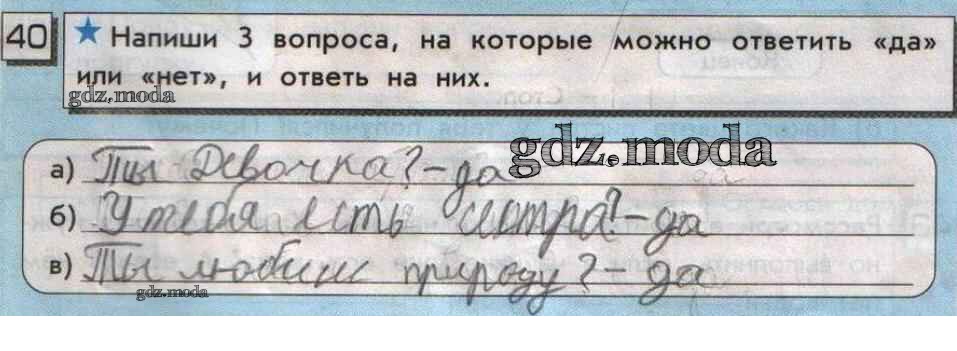 40 ★ Напиши 3 вопроса, на которые можно ответить «да»
или «нет», и ответь на них.
gdz.moda
gdz.moda
а) Ты Девочка? – да
б) У тебя есть сестра? – да
в) Ты любиш природу? – да
gdz.moda